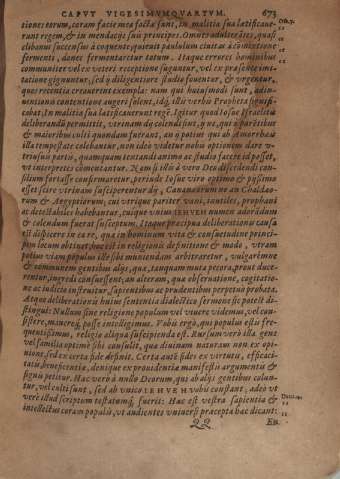 CAPVT VIGESIMVMQVARTVM. 673
tiones totum, coram facie mea factæ sunt, in malitia sua lætificaue-
runt regem, & in mendacijs suis principes. Omnes adulteri es, quasi
clibanus succensus à coquente; quieuit paululum ciuitas à comixtione
fermenti, donec fermentaretur totum. Itaque errores hominibus
communiter vel ex veteri receptione suguntur, vel ex præsente imi-
tatione gignuntur, sed & diligentiore studio fouentur, & vrgentur,
quos recentia creauerint exempla: nam qui huiusmodi sunt, adin-
uentionis contentione augeri solent, idq; illis verbis Propheta significa-
bat, In malitia sua lætificauerunt rege. Igitur quod Iosue Israelitis
deliberandū permittit, vtrum dij colendi sunt, ne, qui à patribus
& maioribus culti quondam fuerant, an ij potius qui ab Amorrhæis
illa tempestate colebantur, non ideo videtur nobis optionem dare v-
trius vis partis, quamquam tentandi animo ac studio facere id posset,
vt interpretes commentantur. Nam si illis à vero Deo discedendi con-
silium fortasse confirmaretur, perinde Iosue viro optimo & pijssimo
esset scire vtrinam susciperentur dij, Cananæorum ne an Chaldæo-
rum & Aegyptiorum; cui vtrique pariter vani, inutiles, prophani
ac detestabiles habebantur, cuique vnius IEHVEH numen adorandum
& colendum fuerat susceptum. Itaque præcipua deliberationis causa
est disposcere in ea re, qua in hominum vita & consuetudine princi-
pem locum obtinet, hoc est in religionis definitione & modo, vtram
potius viam populus ille sibi muniendam arbitraretur, vulgarémne
& communem gentibus alijs, qua, tanquam muta pecora, prout duce-
rentur, ingredi consuessent; an alteram, qua obseruatione, cogitatio-
ne ac iudicio instruitur, sapientibus ac prudentibus perpetuò probata.
Atque deliberationis huius sententia dialectico sermone sic potest di-
stingui: Nullum sine religione populum vel viuere videmus, vel con-
sistere, maneréq; posse intelligimus. Vobis ergo, qui populus estis fre-
quentissimus, religio aliqua suscipienda est. Rursum verò illa gens
vel familia optimè sibi consulit, qua diuinam naturam non ex opi-
nione, sed ex certa fide definit. Certa autē fides ex virtutis, efficaci-
tatis beneficentiæ, denique ex prouidentiæ manifestis argumentis &
signis petitur. Hæc verò à nullo Deorum, qui ab alijs gentibus colun-
tur, vel culti sunt, sed ab vnico IEHVEH vobis constant, adeo vt
verè illud scriptum testatumq; fuerit: Hæc est vestra sapientia &
intellectus coram populis, vt audientes vniuersi præcepta hæc dicant:
En